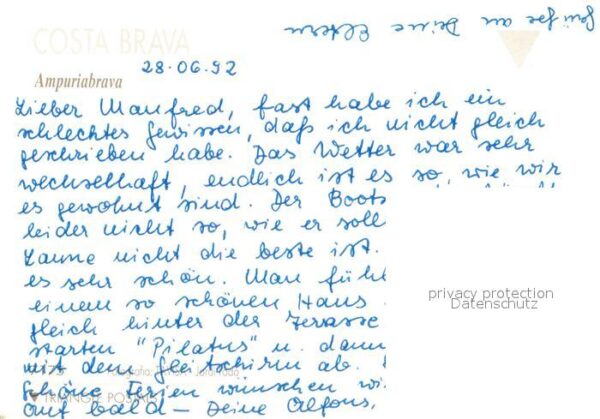 COSTA BRAVA
Grüsse an Deine Eltern
28.06.92
Ampuriabrava
Lieber Manfred, fast habe ich ein
schlechtes Gewissen, daß ich nicht gleich
geschrieben habe. Das Wetter war sehr
wechselhaft, endlich ist es so, wie wir
es gewohnt sind. Der Boots
leider nicht so, wie er soll
Laune nicht die beste ist.
es sehr schön. Man fühl
einem so schönen Haus
gleich hinter der Terasse
starten "Pilatus" u. dann
mit dem Gleitschirm ab.
Schöne Ferien wünschen wi
TRIANGLE POSTALS
auf bald – Deine Alfons,
privacy protection
Datenschutz